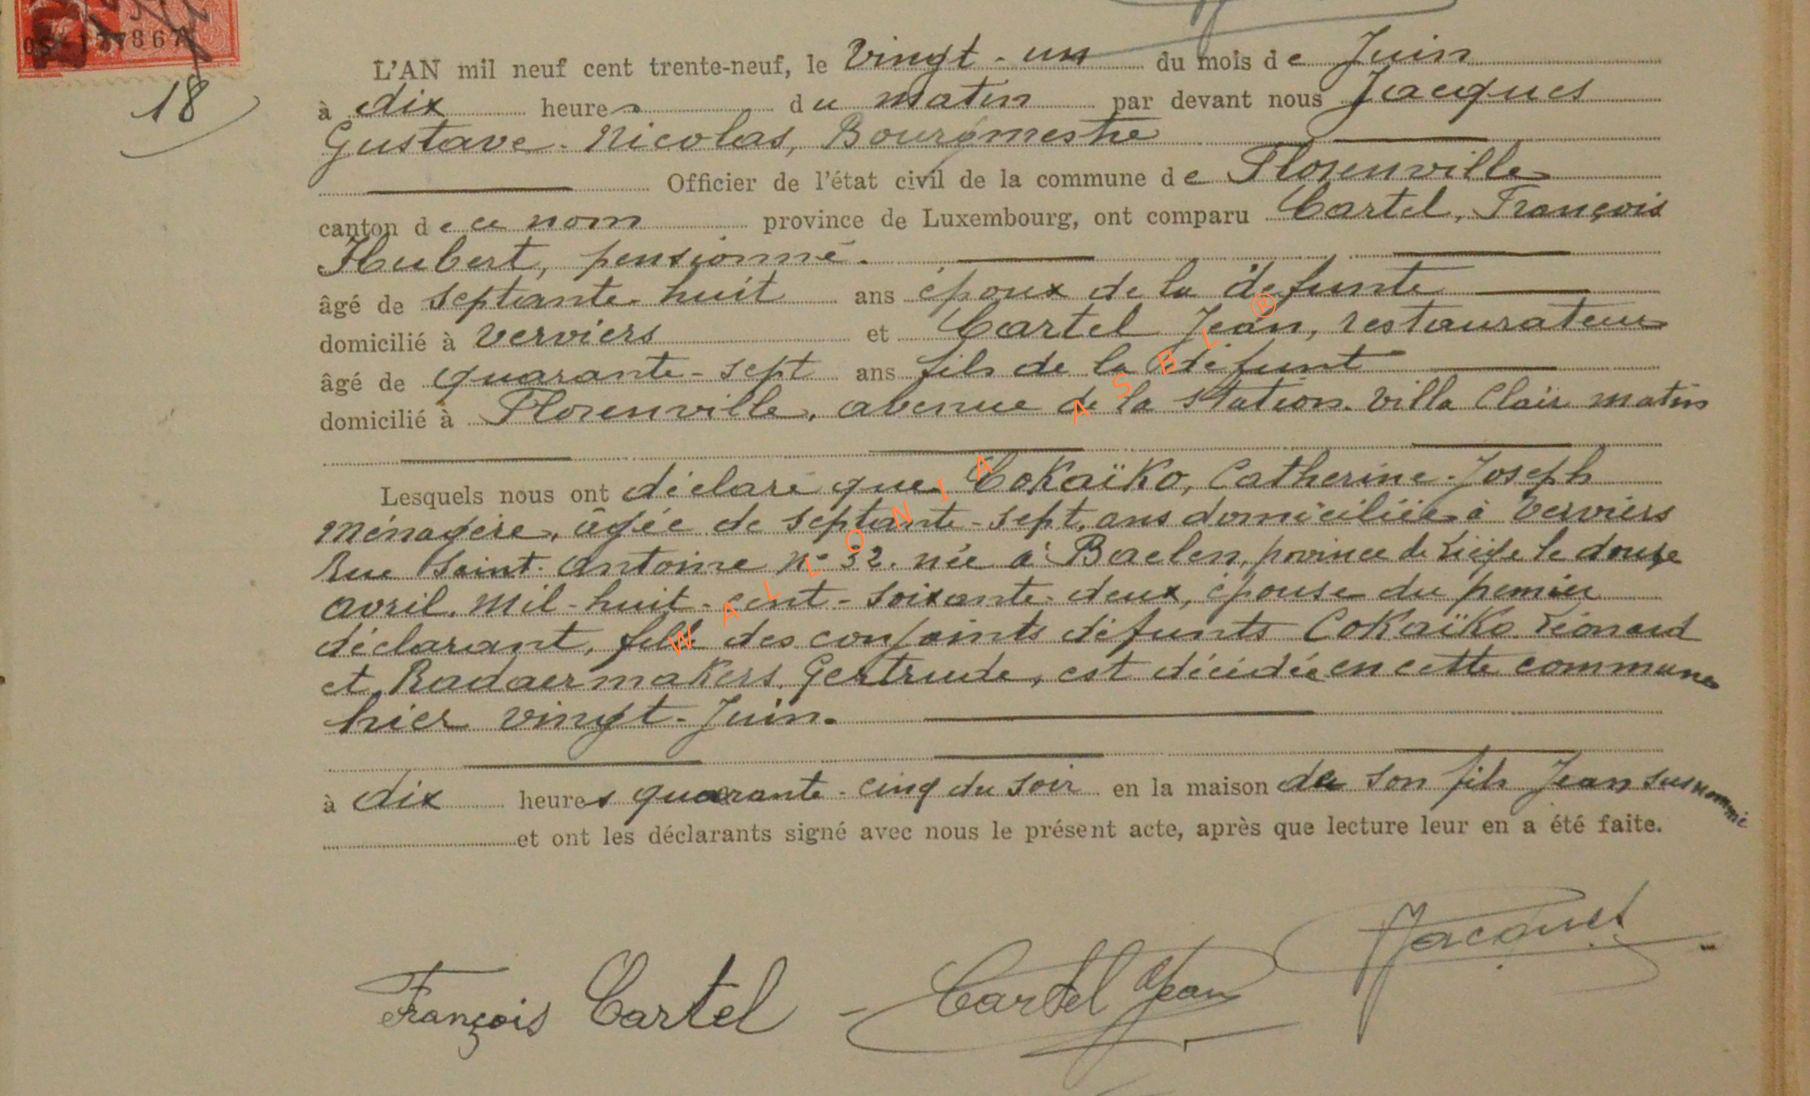 18
L'AN mil neuf cent trente-neuf, le Vingt-un du mois de Juin
à dix heures du matin par devant nous Jacques
Gustave-Nicolas, Bourgmestre
Officier de l'état civil de la commune de Florenville
canton de ce nom province de Luxembourg, ont comparu Cartel, François
Hubert, pensionné.
âgé de septante-huit ans époux de la défunte
domicilié à Verviers et Cartel Jean, restaurateur
âgé de quarante-sept ans fils de la défunt
domicilié à Florenville, avenue de la Station. Villa Clair matin
Lesquels nous ont déclaré que Cokaïko, Catherine-Joseph
Ménagère, âgée de septante-sept, ans domiciliée à Verviers
Rue Saint-Antoine N° 32. née à Baelen, province de Liège le douze
avril. Mil-huit-cent-soixante-deux, épouse du premier
déclarant, fille des conjoints défunts Cokaïko Léonard
et Radaermakers Gertrude, est décédée en cette commune
hier vingt-Juin.
à dix heures quarante-cinq du soir en la maison de son fils Jean susnommé
et ont les déclarants signé avec nous le présent acte, après que lecture leur en a été faite.
François Cartel - Cartel Jean Jacques
WALLONIA ASBL ®